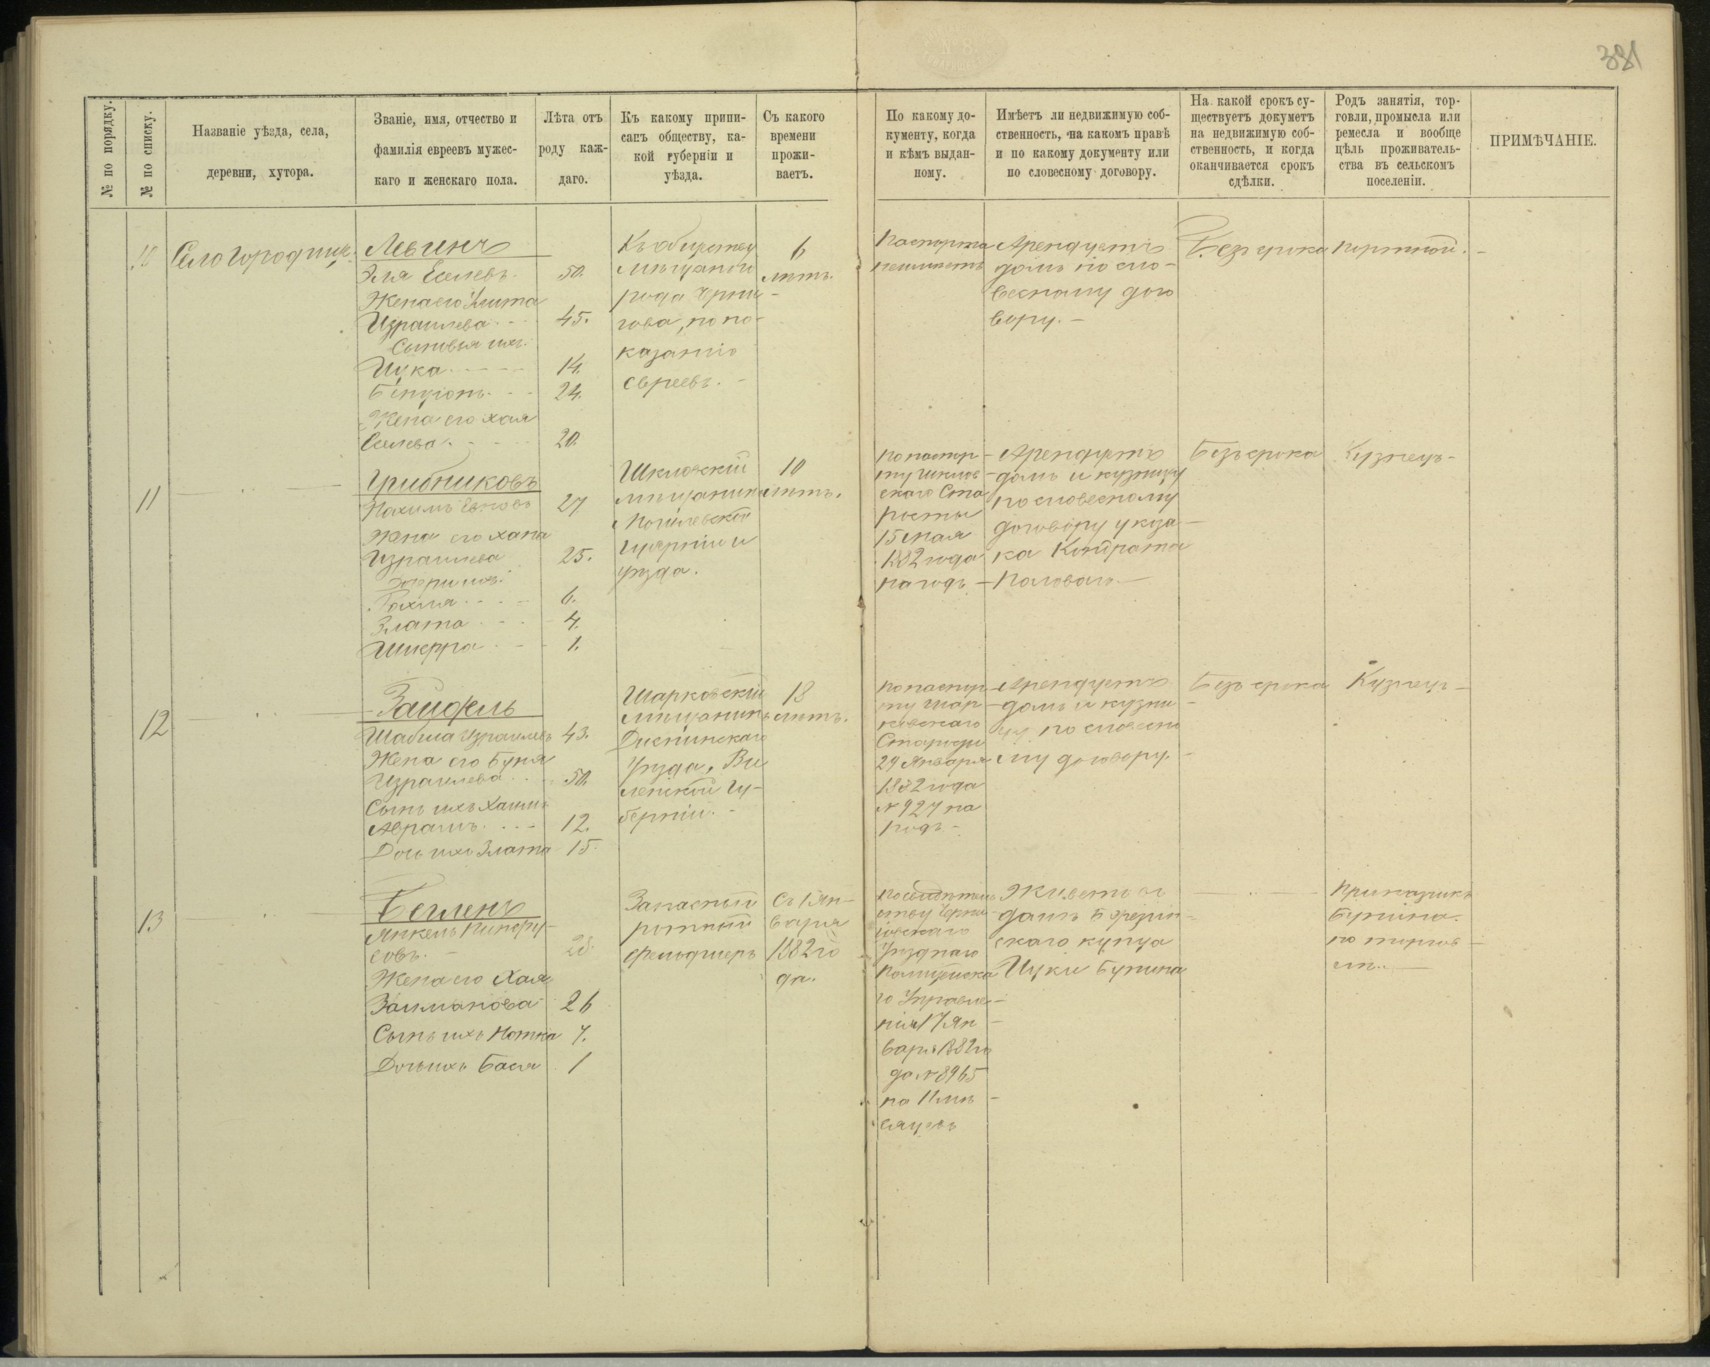 381
№ по порядку.
№ по списку.
Названіе уѣзда, села,
деревни, хутора.
Званіе, имя, отчество и
фамилія евреевъ мужес-
каго и женскаго пола.
Лѣта отъ
роду каж-
даго.
Къ какому припи-
санъ обществу, ка-
кой губерніи и
уѣзда.
Съ какого
времени
прожи-
ваетъ.
По какому до-
кументу, когда
и кѣмъ выдан-
ному.
Имѣетъ ли недвижимую соб-
ственность, на какомъ правѣ
и по какому документу или
по словесному договору.
На какой срокъ су-
ществуетъ документъ
на недвижимую соб-
ственность, и когда
оканчивается срокъ
сдѣлки.
Родъ занятія, тор-
говли, промысла или
ремесла и вообще
цѣль проживатель-
ства въ сельскомъ
поселеніи.
ПРИМѢЧАНІЕ.
10
Село Городище.
Левинъ
Эля Еселевъ. 50.
Жена его
Израилева 45.
Сыновья ихъ:
Ицка 14.
Бенуонъ. 24.
Жена его Хая
Еселева. 20.
Къ обществу
мѣщанъ го
рода Черни-
гова, по по-
казанію
евреевъ.
6
лѣтъ.
Паспорта
неимѣетъ
Арендуетъ
домъ по сло-
весному дого
вору.
Безъ срока
портной.
11
Грибниковъ
Нохимъ 27
Жена его Хана
Израилева 25.
Дочери ихъ:
6.
Злата 4.
1.
Шкловскій
мѣщанинъ
Могилевской
Губерніи и
уѣзда.
10
лѣтъ.
По паспор-
ту Шклов
скаго Ста
росты
15 мая
1882 года
на годъ
Арендуетъ
домъ и кузницу
по словесному
договору у каза-
ка Кондрата
Полового
Безъ срока
Кузнецъ
12
Зайфель
Израилевъ 43.
Жена его Буня
Израилева 50.
Сынъ ихъ Хаимъ
Абрамъ. 12.
Дочь ихъ Злата 15.
Шарковскій
мѣщанинъ
Диснинскаго
уѣзда, Ви
ленской Гу-
берніи.
18
лѣтъ.
По паспор-
ту Шар-
ковскаго
Старосты
29 Января
1882 года
№ 927 на
годъ
Арендуетъ
домъ и кузни
цу по словесно
му договору.
Безъ срока
Кузнецъ
13
Беиленъ
Янкель Пинху-
совъ. 28.
Жена его Хая
Залманова 26
Сынъ ихъ Нотка 7.
Дочь ихъ Бася 1
Запасный
ротный
фельдшеръ
Съ 1 Ян-
варя
1882 го
да.
По свидѣтель
ству Черни-
говскаго
Уѣзднаго
Полицейска
го Управле-
нія 17 Ян-
варя 1882 го
да № 8965
на 11 мѣ-
сяцевъ
Живетъ въ
домѣ Березин-
скаго купца
Ицки Бунина
Приказчикъ
Бунина
по торгов-
лѣ.